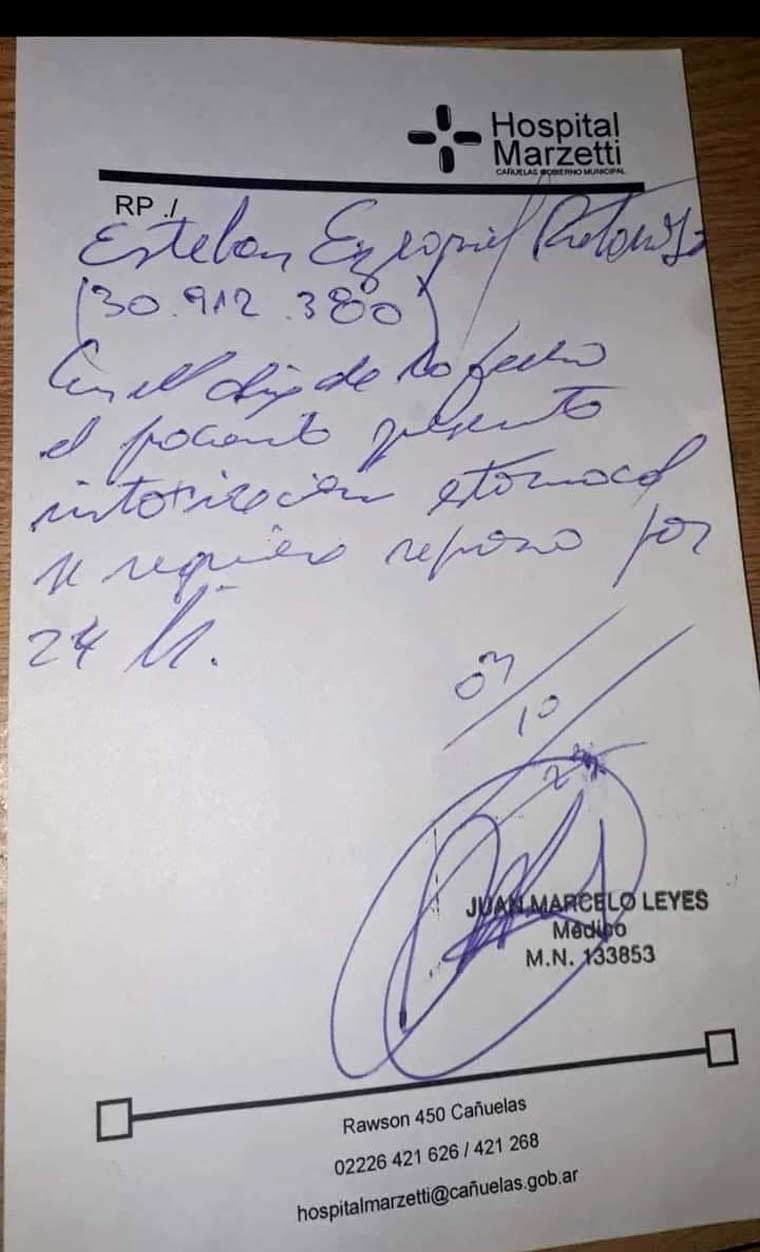 Hospital
Marzetti
CAÑUELAS GOBIERNO MUNICIPAL
RP ./
Esteban Ezequiel
(30.912.380)
En el dia de la fecha
el paciente presento
intoxicacion estomacal
se requiere reposo por
24 hs.
10
JUAN MARCELO LEYES
Médico
M.N. 133853
Rawson 450 Cañuelas
02226 421 626 / 421 268
hospitalmarzetti@cañuelas.gob.ar